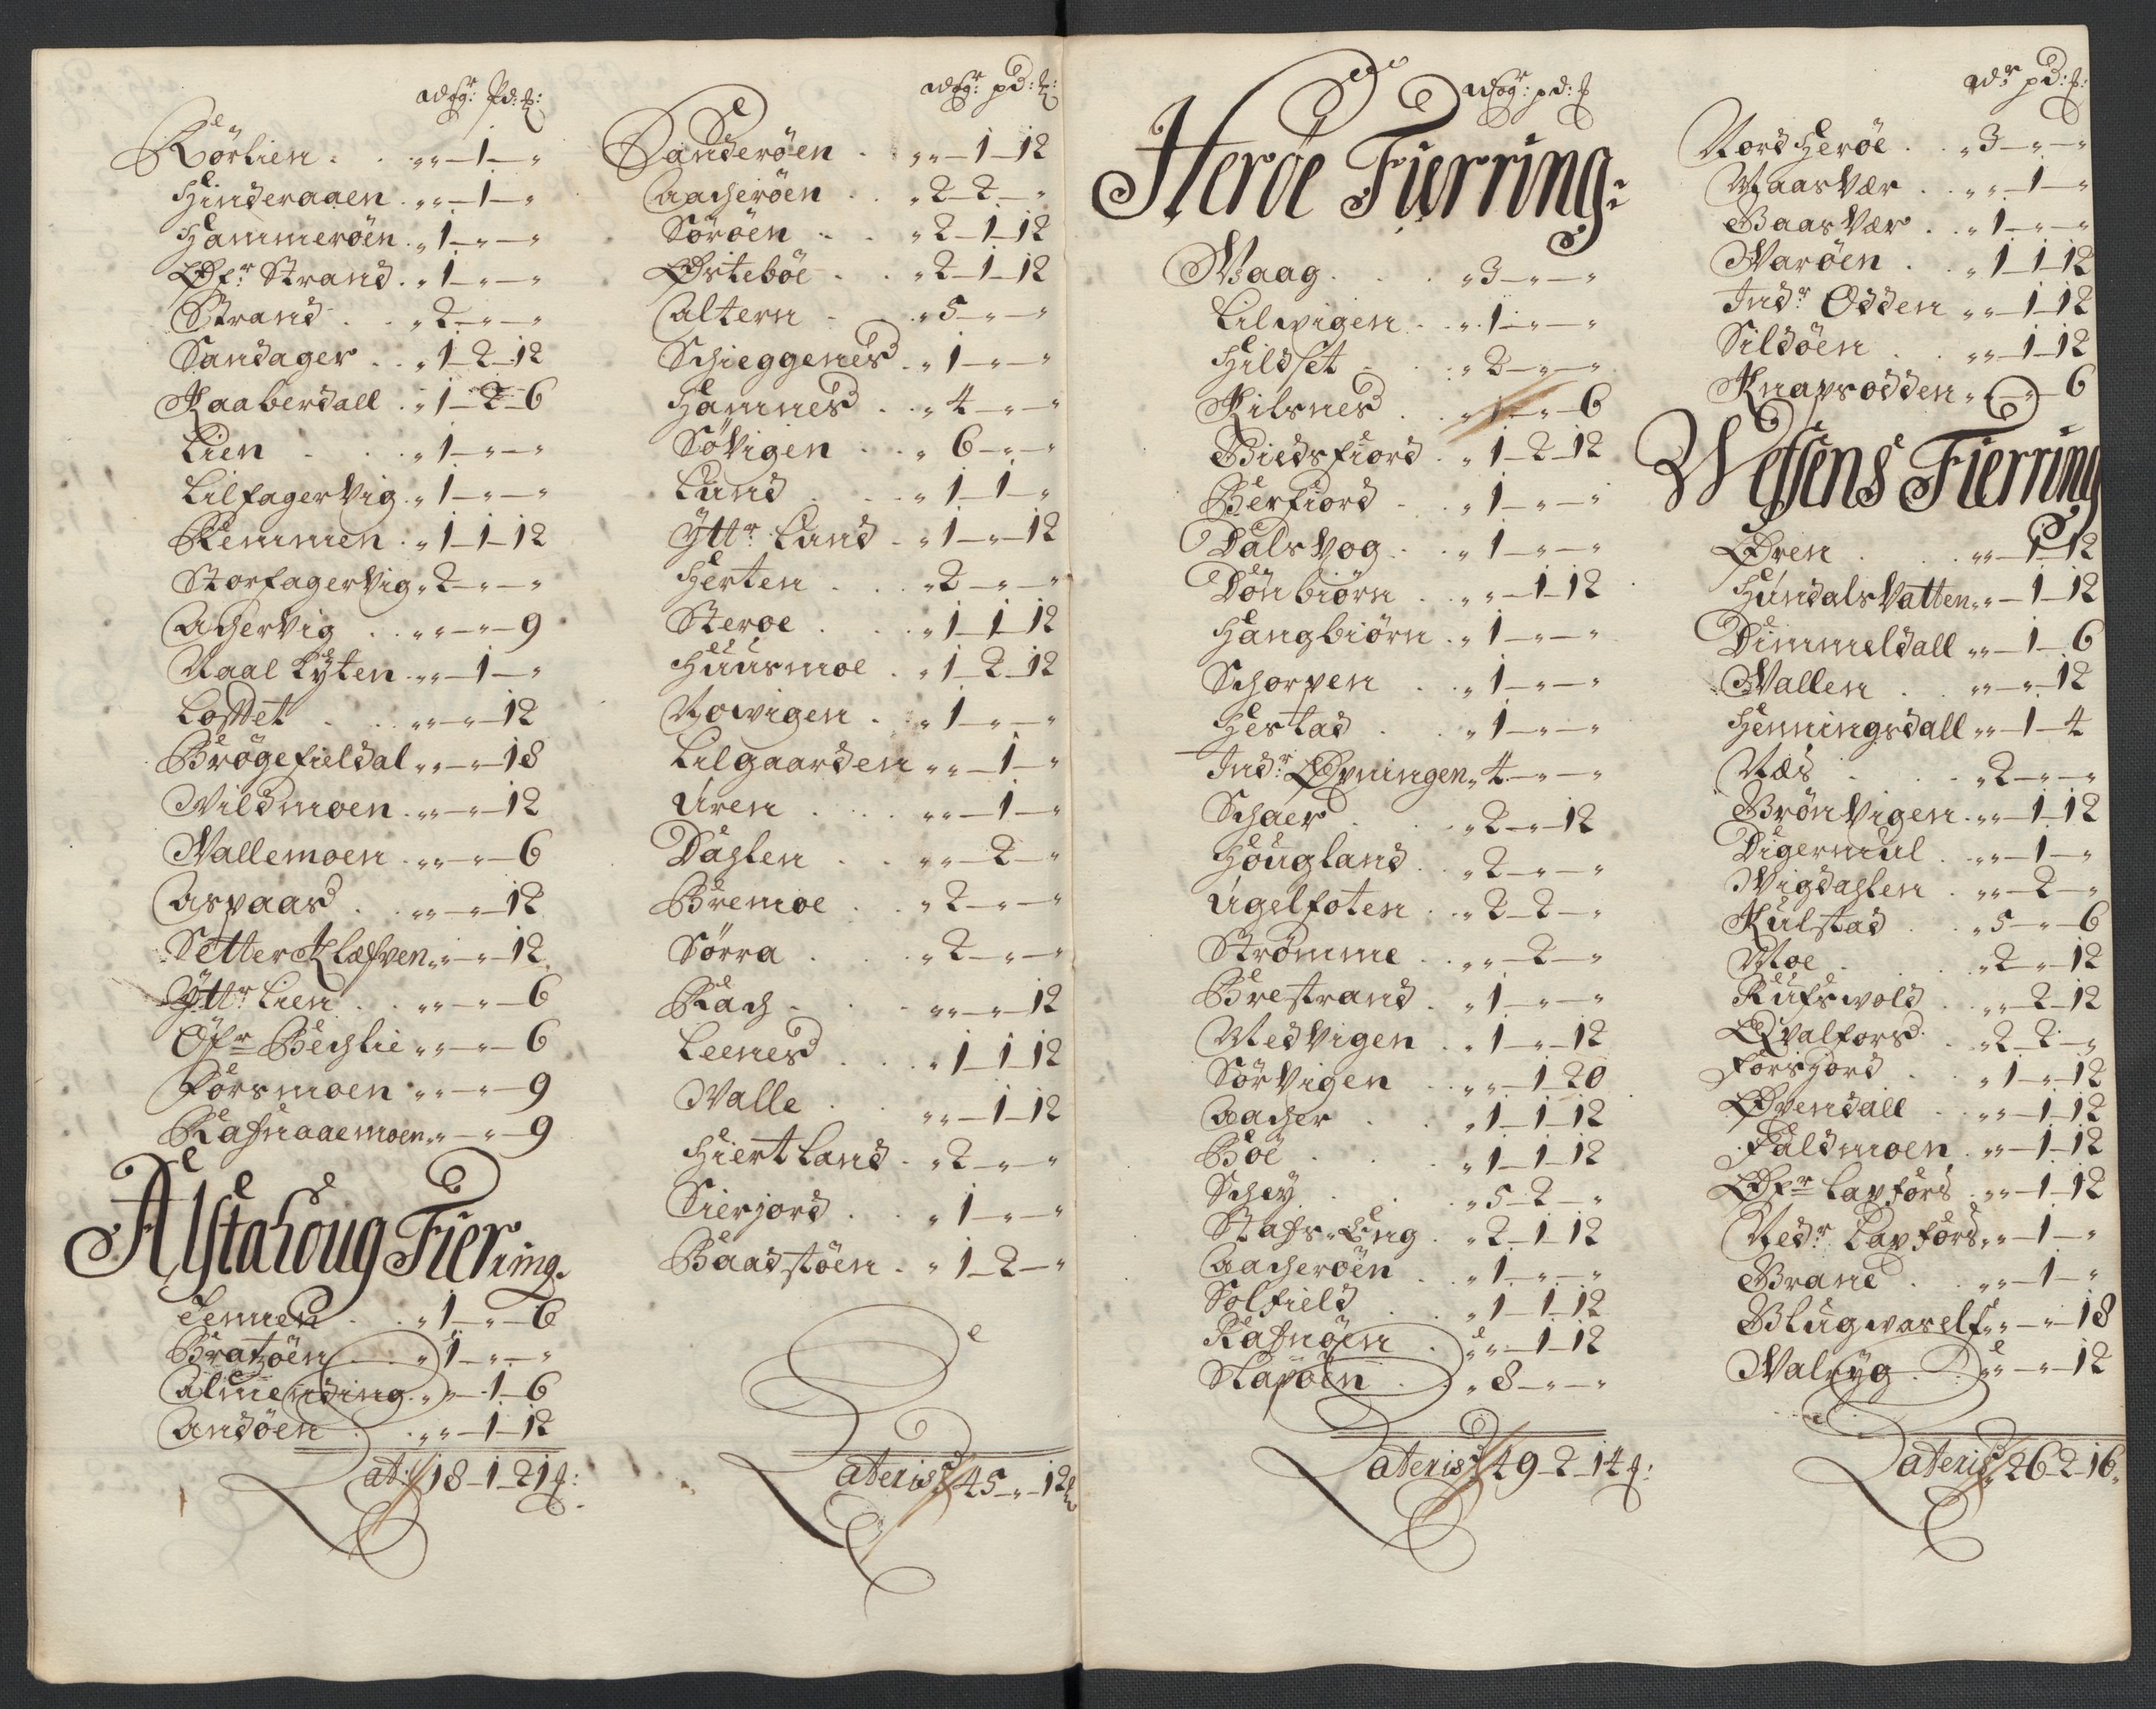 Rörlien . . „ „ — 1 — „
Hinderaaen . „ „ — 1 — „
Hammeröen . „ 1 — „ — „
Øfr Strand . „ 1 — „ — „
Strand . . „ 2 — „ — „
Sandager . . „ 1 — 2 — 12
Kaaberdall . „ 1 — 2 — 6
Lien . . „ 1 — „ — „
Lilfagervig . „ 1 — „ — „
Remmen . „ 1 — 1 — 12
Storfagervig „ 2 — „ — „
Achervig . . „ „ — „ — 9
Naal Lyten . „ „ — 1 — „
Losset . . „ „ — „ — 12
Brögefieldal „ „ — „ — 18
Vildmoen . „ „ — „ — 12
Vallemoen . „ „ — „ — 6
Aspaas . . „ „ — „ — 12
Setter Klæfven „ „ — „ — 12
Yttr Lien . . „ „ — „ — 6
Öfr Bechlie „ „ — „ — 6
Forsmoen „ „ — „ — 9
Rafnaaemoen „ „ — „ — 9
Alstahoug Fierring.
Tennen . „ 1 — „ — 6
Bratzöen „ 1 — „ — „
Almending „ „ — 1 — 6
Andöen . „ „ — 1 — 12
Lat: 18 — 1 — 21
Sanderöen . „ „ — 1 — 12
Aacheröen . . „ 2 — 2 — „
Söröen . . „ 2 — 1 — 12
Østeböe . . „ 2 — 1 — 12
Altern . . „ 5 — „ — „
Schieggenes . „ 1 — „ — „
Hamnes . . „ 4 — „ — „
Sövigen . . „ 6 — „ — „
Lund . . „ 1 — 1 — „
Yttr Lund . „ 1 — „ — 12
Herten . . „ 2 — „ — „
Steroe . . „ 1 — 1 — 12
Huusmoe . „ 1 — 2 — 12
Nowigen . „ 1 — „ — „
Lilgaarden „ „ — 1 — „
Uren . . „ „ — 1 — „
Dahlen . . „ „ — 2 — „
Bremoe . . „ 2 — „ — „
Sörra . . „ 2 — „ — „
Rach . . „ „ — „ — 12
Leenes . . „ 1 — 1 — 12
Valle . . „ „ — 1 — 12
Hiertland . „ 2 — „ — „
Sierjord . . „ 1 — „ — „
Baadstöen . „ 1 — 2 — „
Lateris 45 — „ — 12
Heröe Fierring:
Waag . . „ 3 — „ — „
Lilwigen . „ 1 — „ — „
Hildset . . „ 2 — „ — „
Kilsnes . „ 1 — „ — 6
Biedsfiord . „ 1 — 2 — 12
Berfiord . „ 1 — „ — „
Dalsvog . . „ 1 — „ — „
Dönbiörn . „ „ — 1 — 12
Hangbiörn . „ 1 — „ — „
Schorpen . . „ 1 — „ — „
Hestad . . „ 1 — „ — „
Indr Øvningen „ 4 — „ — „
Schaer . . „ 2 — „ — 12
Hougland . „ 2 — „ — „
Ugelfoten . „ 2 — 2 — „
Strömme . . „ „ — 2 — „
Brestrand . „ 1 — „ — „
Medvigen . „ 1 — „ — 12
Sörvigen . „ „ — 1 — 20
Aacher . . „ 1 — 1 — 12
Böe . . „ 1 — 1 — 12
Schey . . „ 5 — 2 — „
Stafs-Eng . „ 2 — 1 — 12
Aacheröen . „ 1 — „ — „
Solfield . „ 1 — 1 — 12
Rafnöen . „ „ — 1 — 12
Slapöen . „ 8 — „ — „
Lateris 49 — 2 — 14
Nord Heröe . „ 3 — „ — „
Maasvær . . „ „ — 1 — „
Baasvær . . „ 1 — „ — „
Waröen . . „ 1 — 1 — 12
Indr Odden „ „ — 1 — 12
Sildöen . . „ „ — 1 — 12
Knapsodden „ „ — „ — 6
Wefsens Fierring
Øren . . „ „ — 1 — 12
Hundalsvatten „ „ — 1 — 12
Dimmeldall „ „ — 1 — 6
Wallen . . „ „ — „ — 12
Henningsdall „ „ — 1 — 4
Næs . . „ 2 — „ — „
Brönvigen . „ „ — 1 — 12
Digermul . „ „ — 1 — „
Vigdahlen . „ „ — 2 — „
Kulstad . . „ 5 — „ — 6
Moe . . „ 2 — „ — 12
Rufswold . „ „ — 2 — 12
Qvalfors . „ 2 — 2 — „
Forsjord . . „ 1 — „ — 12
Øvendall . „ „ — 1 — 12
Faldmoen . „ „ — 1 — 12
Øfr Lapfors „ „ — 1 — 12
Nedr Lapfors „ „ — 1 — „
Brane . . „ „ — 1 — „
Blugwaself „ „ — „ — 18
Walryg . „ „ — „ — 12
Lateris 26 — 2 — 16